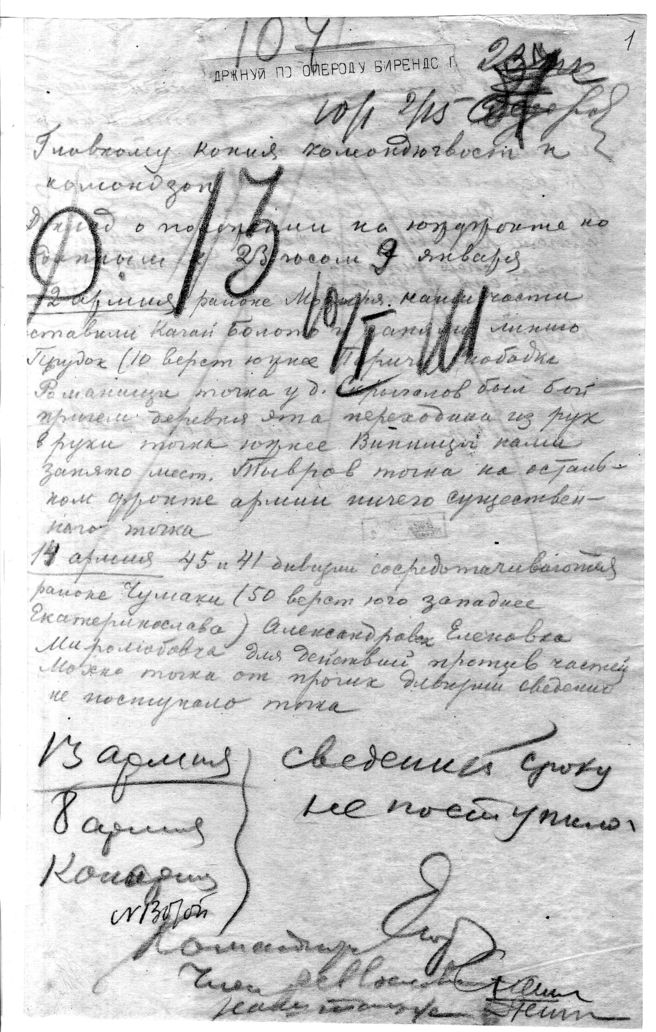 1
107
ДРЖНУЙ ПО ОПЕРОДУ БИРЕНДС Г.
10/I 2/15
Главкому копия командючвост и
командзап
о положении на южфронте по
данным к 23 часам 9 января
12 армия районе Мозыря. наши части
оставили Качай Болото и заняли линию
Прудок (10 верст южнее слободка
Романищи точка у д. Скрыгалов был бой
причем деревня эта переходила из рук
в руки точка южнее Винницы нами
занято мест. Тывров точка на осталь-
ном фронте армии ничего существен-
ного точка
14 армия 45 и 41 дивизии сосредотачиваются
районе Чумаки (50 верст юго западнее
Екатеринослава) Александровк Еленовка
Миролюбовка для действий против частей
Махно точка от прочих дивизий сведений
не поступало точка
13 армия сведений сроку
8 армия не поступило.
Конармия
Командюж
Член